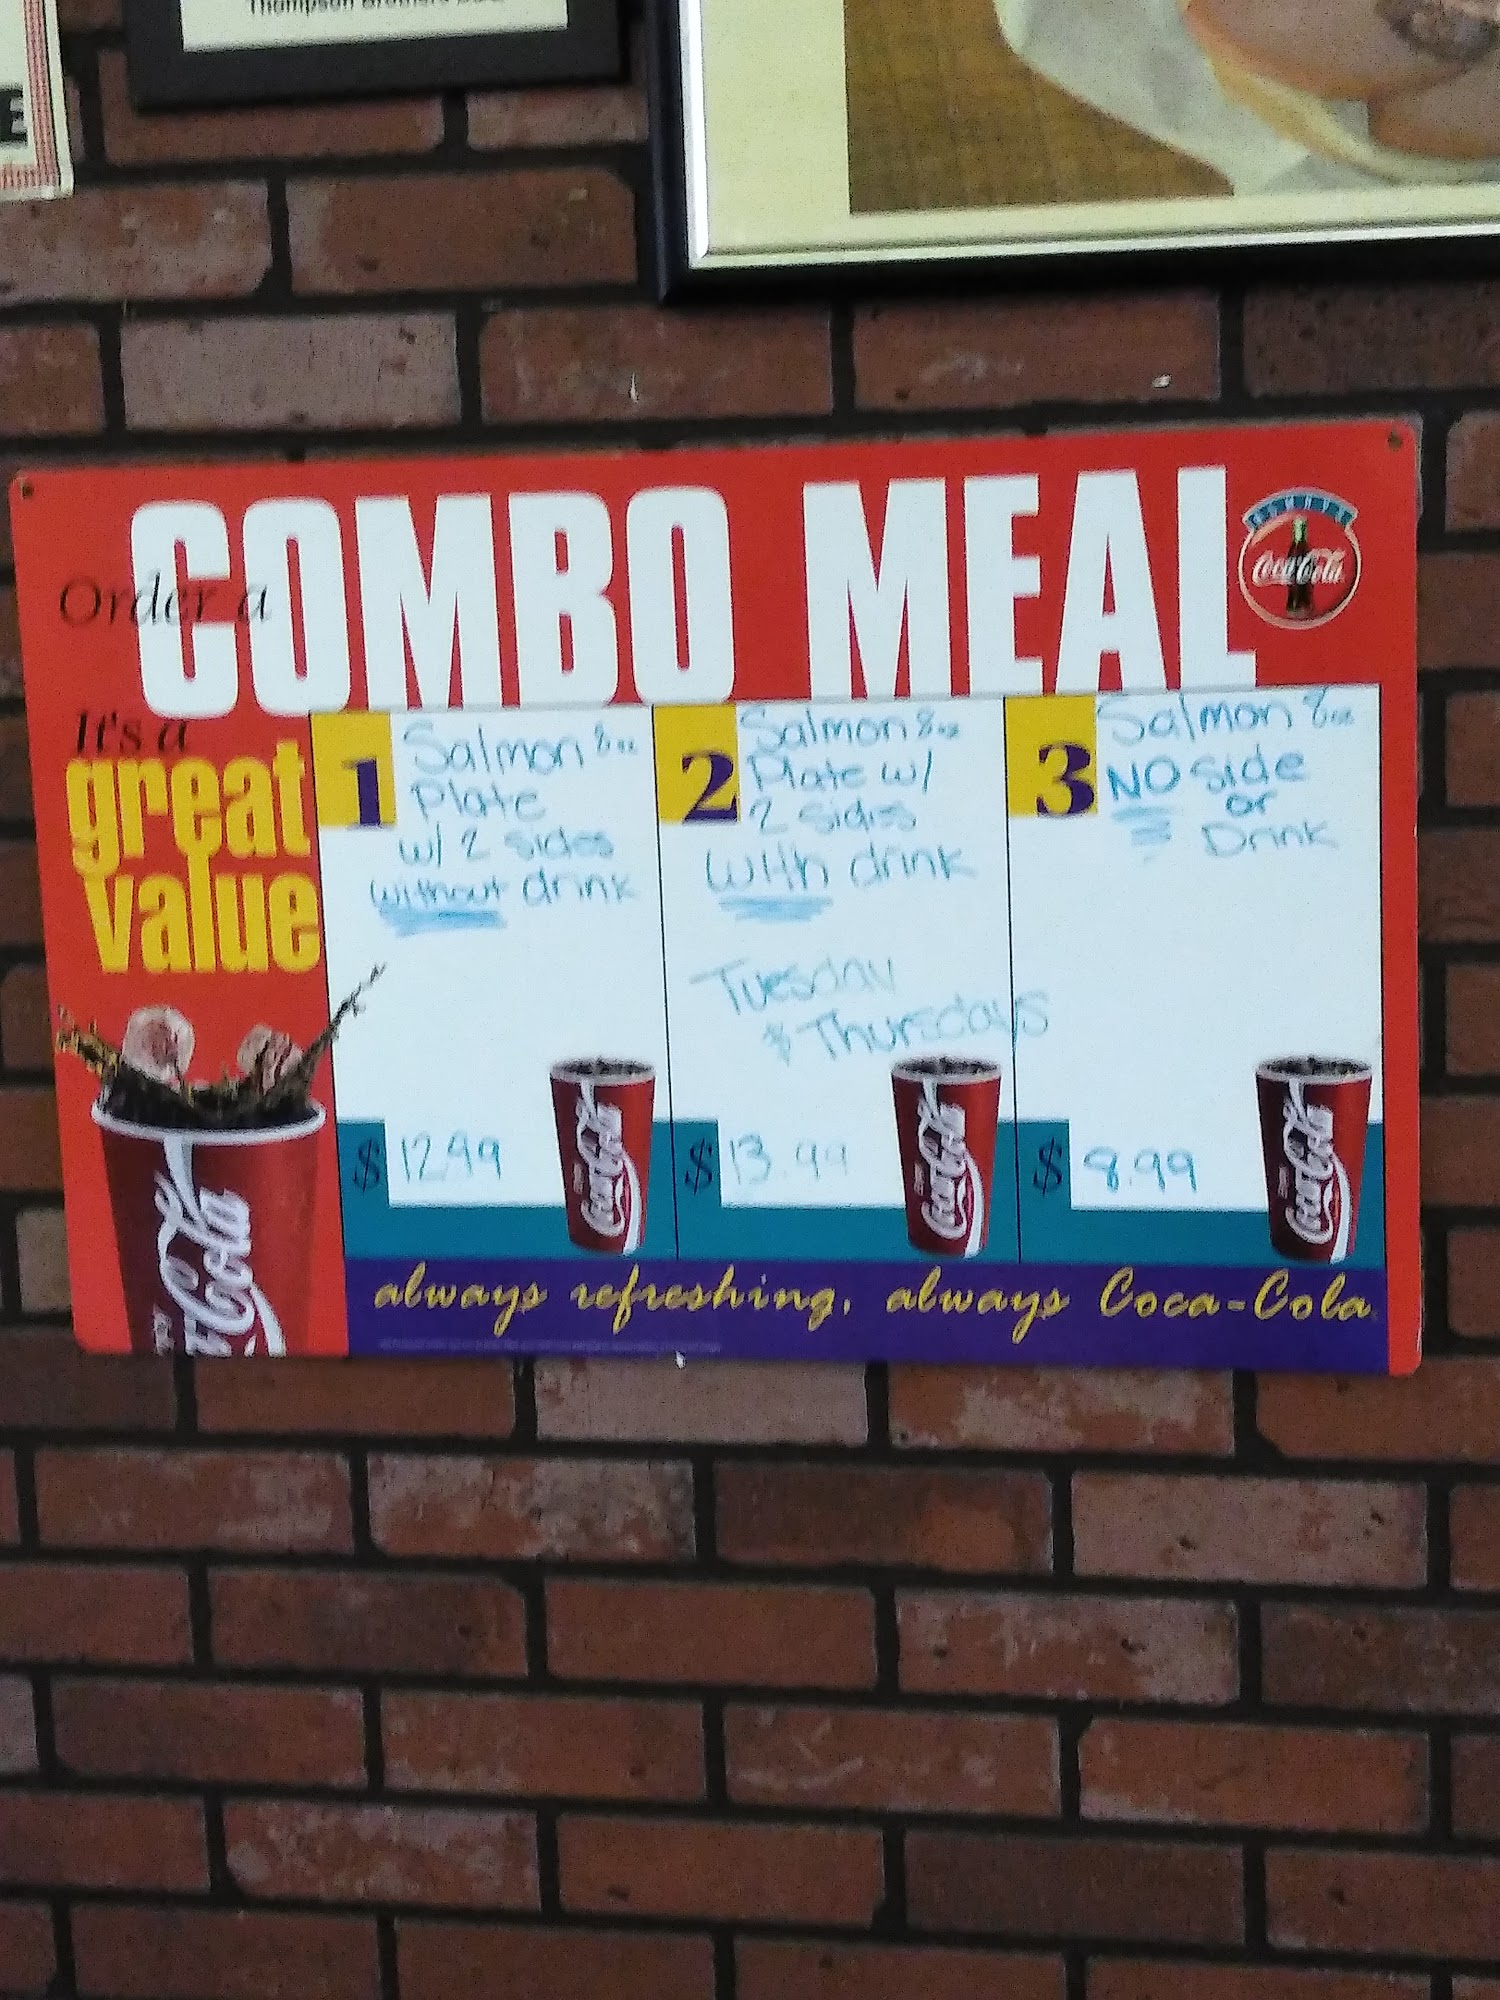 E
Order a
COMBO MEAL
Coca-Cola
It's a
great
value
1
Salmon 8oz
Plate
w/ 2 sides
without drink
$ 12.99
2
Salmon 8oz
Plate w/
2 sides
with drink
Tuesday
& Thursdays
$ 13.99
3
Salmon 8oz
NO side
or
Drink
$ 8.99
Coca-Cola
Coca-Cola
Coca-Cola
Coca-Cola
always refreshing, always Coca-Cola